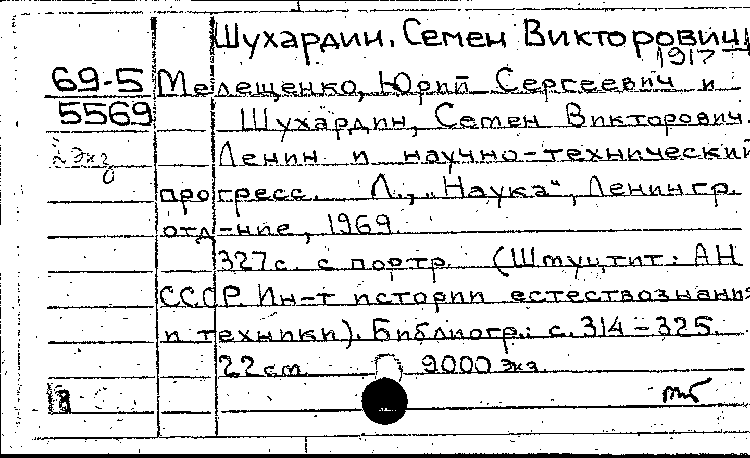 Шухардин, Семен Викторович,
1917
69-5 Мелещенко, Юрий Сергеевич и
5569 Шухардин, Семен Викторович.
2 экз Ленин и научно-технический
прогресс. Л., „Наука“, Ленингр.
отд-ние, 1969.
327 с. с портр. (Штуцтит: АН
СССР. Ин-т истории естествознания
и техники). Библиогр.: с. 314-325.
22 см 9000 экз.